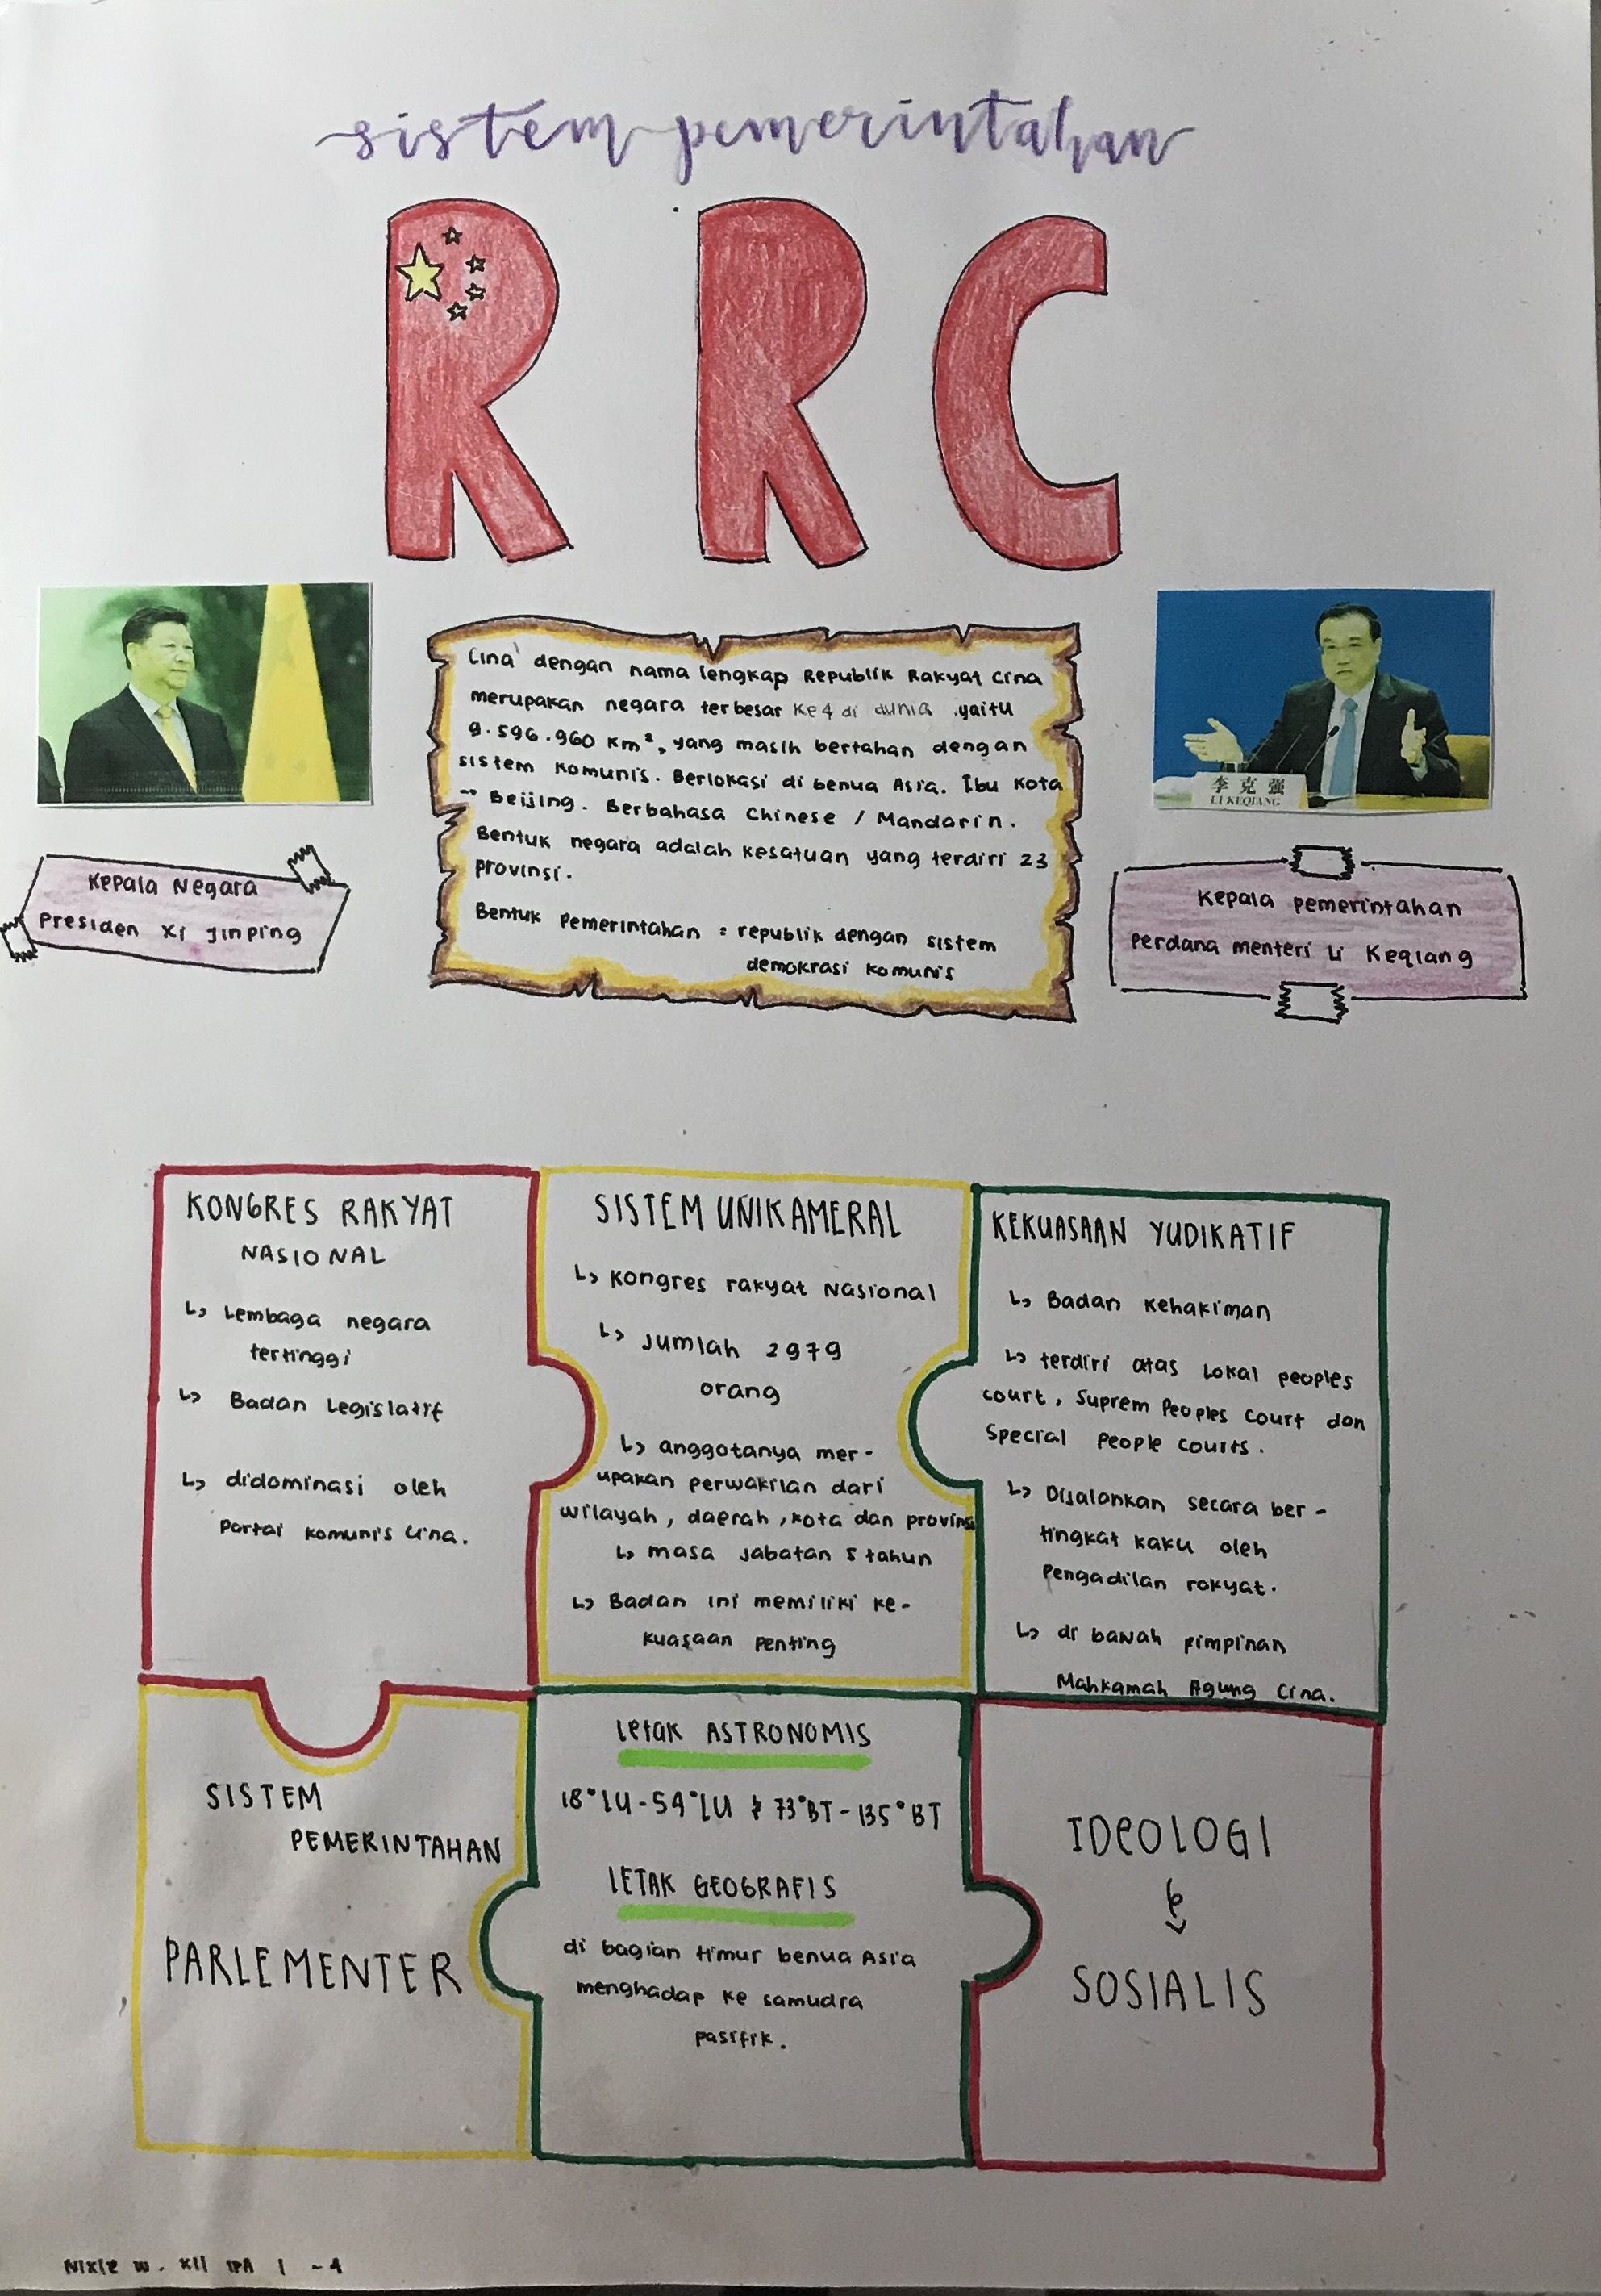 sistem pemerintahan
RRC
李克强
LI KEQIANG
Kepala Negara
Presiden Xi Jinping
Cina dengan nama lengkap Republik Rakyat Cina
merupakan negara terbesar ke 4 di dunia yaitu
9.596.960 km², yang masih bertahan dengan
sistem komunis. Berlokasi di benua Asia. Ibu kota
-- Beijing. Berbahasa Chinese / Mandarin.
Bentuk negara adalah kesatuan yang terdiri 23
provinsi.
Bentuk Pemerintahan = republik dengan sistem
demokrasi komunis
Kepala pemerintahan
Perdana menteri Li Keqiang
KONGRES RAKYAT
NASIONAL
↳ Lembaga negara
tertinggi
↳ Badan Legislatif
↳ didominasi oleh
Partai komunis Cina.
SISTEM UNIKAMERAL
↳ Kongres rakyat Nasional
↳ Jumlah 2979
orang
↳ anggotanya mer-
upakan perwakilan dari
wilayah, daerah, kota dan provinsi
↳ masa jabatan 5 tahun
↳ Badan ini memiliki ke-
kuasaan penting
KEKUASAAN YUDIKATIF
↳ Badan kehakiman
↳ terdiri atas Lokal peoples
court, Suprem Peoples Court dan
Special People courts.
↳ Dijalankan secara ber-
tingkat kaku oleh
Pengadilan rakyat.
↳ di bawah pimpinan
Mahkamah Agung Cina.
SISTEM
PEMERINTAHAN
PARLEMENTER
Letak ASTRONOMIS
18°LU-54°LU & 73°BT-135°BT
LETAK GEOGRAFIS
di bagian timur benua Asia
menghadap ke samudra
pasifik.
IDEOLOGI
SOSIALIS
Nixie W. XII IPA 1 - 4